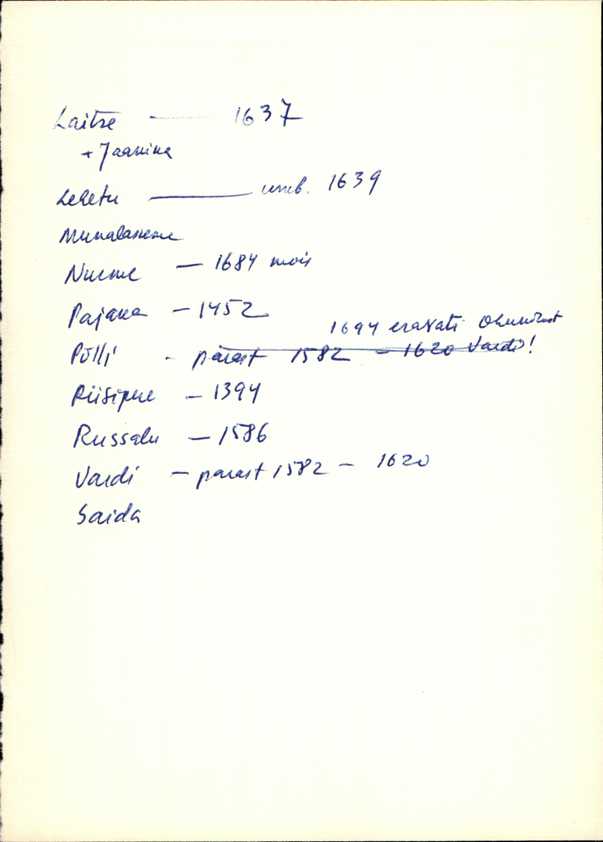 Laitse — 1637
+ Jaanika
Lehetu — umb. 1639
Munalaskme
Nurme — 1684 mois
Pajaka — 1452
1694 eravati Ohtu
Põlli - pärast 1582 – 1620 Vardi!
Riisipere – 1394
Russalu — 1586
Vardi – pärast 1582 – 1620
Saida